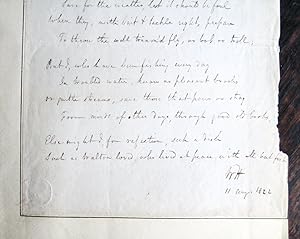 Care for the weather lest it should be foul
When they, with bait & tackle right, prepare
To throw the well trimm'd fly, or bob or troll;
But I, who have been fishing every day
In troubled water, known no pleasant brooks
or gentle streams, save those that pour or stray
From mists of other days through good old books,
Else might I from refection, such a dish
Such as Walton lov'd, who liv'd at peace with all but fish
11 Augt 1822